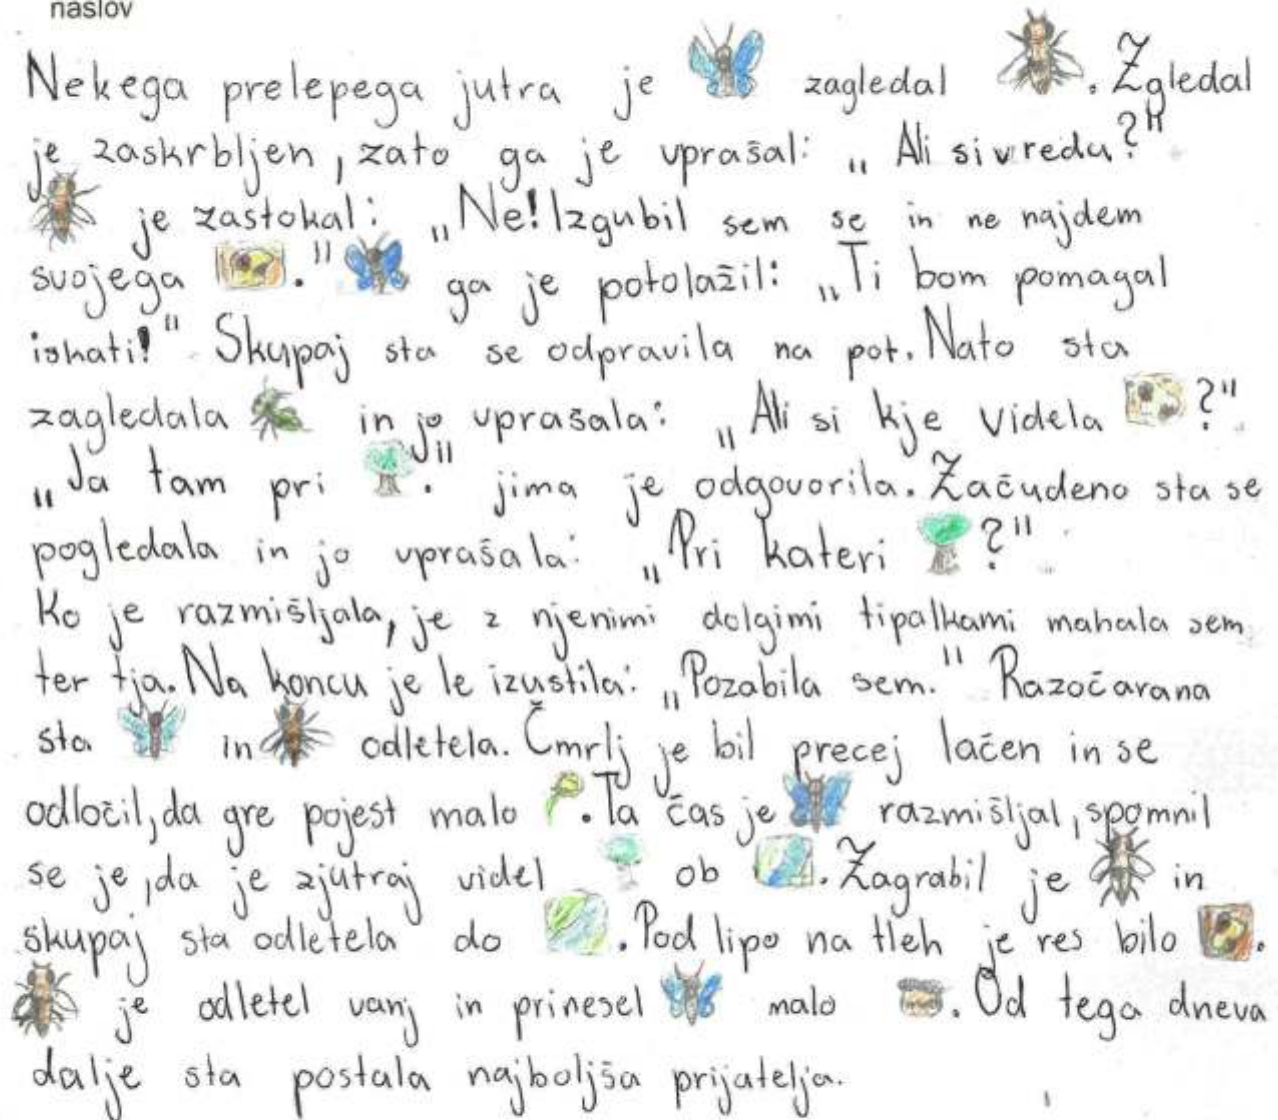 naslov
Nekega prelepega jutra je zagledal . Zgledal
je zaskrbljen, zato ga je uprašal: „Ali si vredu?"
je zastokal: „Ne! Izgubil sem se in ne najdem
svojega ." ga je potolažil: „Ti bom pomagal
iskati!" Skupaj sta se odpravila na pot. Nato sta
zagledala in jo uprašala: „Ali si kje videla ?"
„Ja tam pri ." jima je odgovorila. Začudeno sta se
pogledala in jo uprašala: „Pri kateri ?"
Ko je razmišljala, je z njenimi dolgimi tipalkami mahala sem
ter tja. Na koncu je le izustila: „Pozabila sem." Razočarana
sta in odletela. Čmrlj je bil precej lačen in se
odločil, da gre pojest malo . Ta čas je razmišljal, spomnil
se je, da je zjutraj videl ob . Zagrabil je in
skupaj sta odletela do . Pod lipo na tleh je res bilo .
je odletel vanj in prinesel malo . Od tega dneva
dalje sta postala najboljša prijatelja.